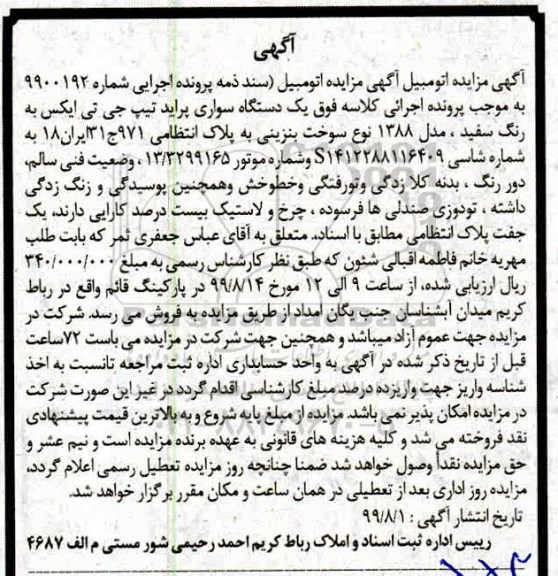 آگهی
آگهی مزایده اتومبیل آگهی مزایده اتومبیل (سند ذمه پرونده اجرایی شماره ۹۹۰۰۱۹۲
به موجب پرونده اجرائی کلاسه فوق یک دستگاه سواری پراید تیپ جی تی ایکس به
رنگ سفید ، مدل ۱۳۸۸ نوع سوخت بنزینی به پلاک انتظامی ۹۷۱ج۳۱ایران۱۸ به
شماره شاسی S۱۴۱۲۲۸۸۱۱۶۴۰۹ وشماره موتور ۱۳/۳۲۹۹۱۶۵ ، وضعیت فنی سالم،
دور رنگ ، بدنه کلا زدگی وتورفتگی وخطوخش وهمچنین پوسیدگی و زنگ زدگی
داشته ، تودوزی صندلی ها فرسوده ، چرخ و لاستیک بیست درصد کارایی دارند، یک
جفت پلاک انتظامی مطابق با اسناد. متعلق به آقای عباس جعفری ثمر که بابت طلب
مهریه خانم فاطمه اقبالی شئون که طبق نظر کارشناس رسمی به مبلغ ۳۴۰/۰۰۰/۰۰۰
ریال ارزیابی شده، از ساعت ۹ الی ۱۲ مورخ ۹۹/۸/۱۴ در پارکینگ قائم واقع در رباط
کریم میدان آبشناسان جنب یگان امداد از طریق مزایده به فروش می رسد. شرکت در
مزایده جهت عموم آزاد میباشد و همچنین جهت شرکت در مزایده می باست ۷۲ساعت
قبل از تاریخ ذکر شده در آگهی به واحد حسابداری اداره ثبت مراجعه تانسبت به اخذ
شناسه واریز جهت واریزده درصد مبلغ کارشناسی اقدام گردد در غیر این صورت شرکت
در مزایده امکان پذیر نمی باشد. مزایده از مبلغ پایه شروع و به بالاترین قیمت پیشنهادی
نقد فروخته می شد و کلیه هزینه های قانونی به عهده برنده مزایده است و نیم عشر و
حق مزایده نقدأ وصول خواهد شد ضمنا چنانچه روز مزایده تعطیل رسمی اعلام گردد،
مزایده روز اداری بعد از تعطیلی در همان ساعت و مکان مقرر برگزار خواهد شد.
تاریخ انتشار آگهی : ۹۹/۸/۱
رییس اداره ثبت اسناد و املاک رباط کریم احمد رحیمی شور مستی م الف ۴۶۸۷